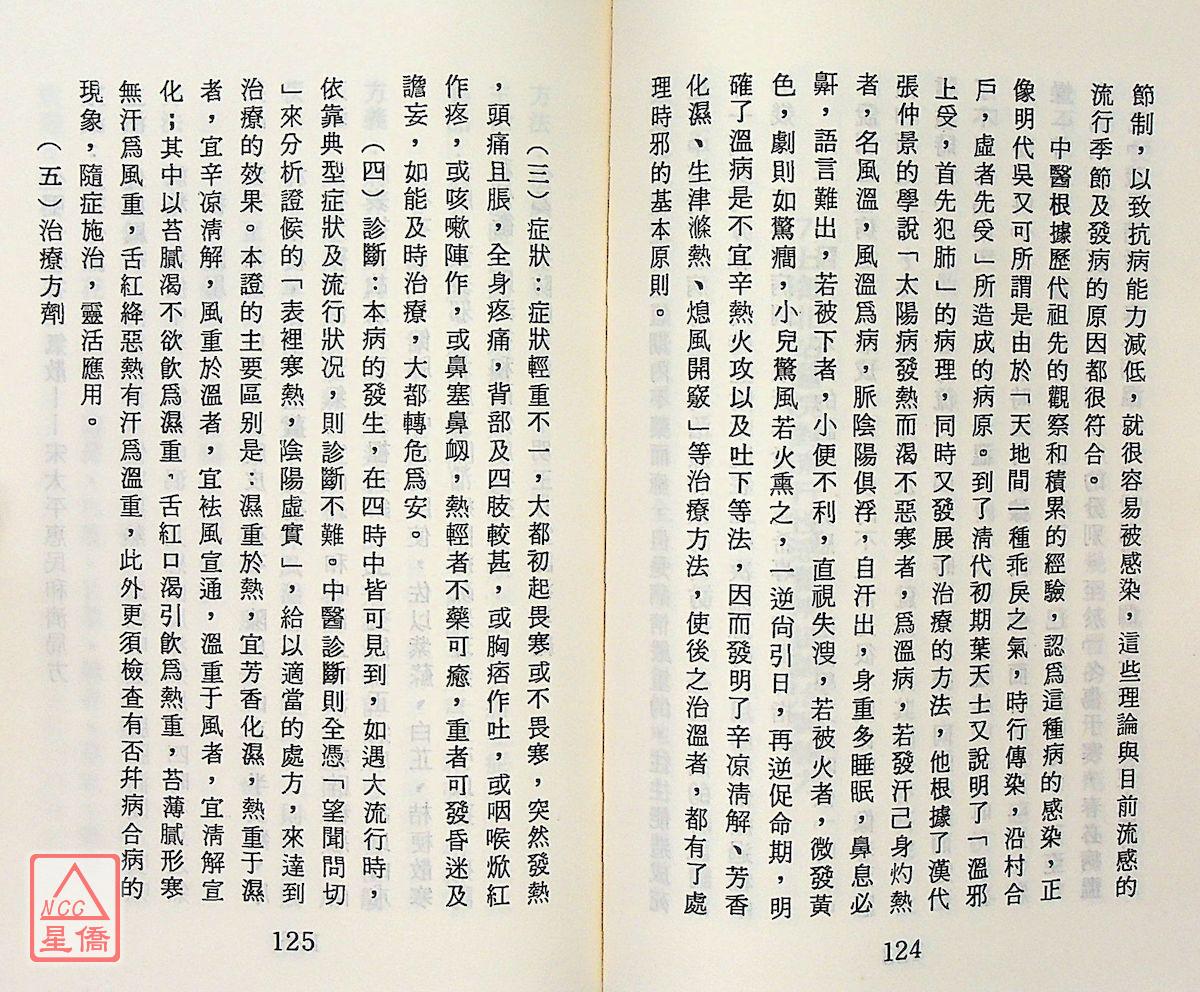 節制，以致抗病能力減低，就很容易被感染，這些理論與目前流感的
流行季節及發病的原因都很符合。
中醫根據歷代祖先的觀察和積累的經驗，認爲這種病的感染，正
像明代吳又可所謂是由於「天地間一種乖戾之氣，時行傳染，沿村合
戶，虛者先受」所造成的病原。到了清代初期葉天士又說明了「溫邪
上受，首先犯肺」的病理，同時又發展了治療的方法，他根據了漢代
張仲景的學說「太陽病發熱而渴不惡寒者，爲溫病，若發汗已身灼熱
者，名風溫，風溫爲病，脈陰陽俱浮，自汗出，身重多睡眠，鼻息必
鼾，語言難出，若被下者，小便不利，直視失溲，若被火者，微發黃
色，劇則如驚癇，小兒驚風若火熏之，一逆尙引日，再逆促命期，明
確了溫病是不宜辛熱火攻以及吐下等法，因而發明了辛凉淸解、芳香
化濕、生津滌熱、熄風開竅」等治療方法，使後之治溫者，都有了處
理時邪的基本原則。
124
（三）症狀：症狀輕重不一，大都初起畏寒或不畏寒，突然發熱
，頭痛且脹，全身疼痛，背部及四肢較甚，或胸痞作吐，或咽喉焮紅
作疼，或咳嗽陣作，或鼻塞鼻衂，熱輕者不藥可癒，重者可發昏迷及
譫妄，如能及時治療，大都轉危爲安。
（四）診斷：本病的發生，在四時中皆可見到，如遇大流行時，
依靠典型症狀及流行狀况，則診斷不難。中醫診斷則全憑「望聞問切
」來分析證候的「表裡寒熱，陰陽虛實」，給以適當的處方，來達到
治療的效果。本證的主要區别是：濕重於熱，宜芳香化濕，熱重于濕
者，宜辛凉淸解，風重於溫者，宜袪風宣通，溫重于風者，宜淸解宣
化；其中以苔膩渴不欲飮爲濕重．舌紅口渴引飮爲熱重，苔薄膩形寒
無汗爲風重，舌紅絳惡熱有汗爲溫重，此外更須檢查有否幷病合病的
現象，隨症施治，靈活應用。
（五）治療方劑
125
NCC
星僑